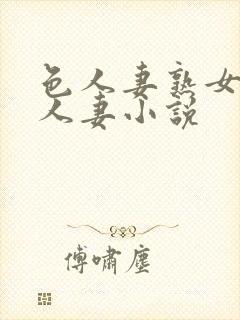 色人妻熟女
人妻小说
傅啸尘